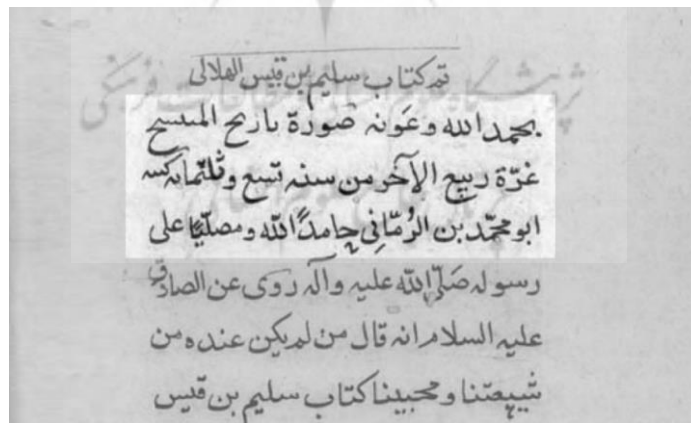 تم كتاب سليم بن قيس الهلالي
بحمد الله وعَونه صورة تاريخ المنتسخ
غرّة ربيع الآخر من سنه تسع وثلثمائه كتبه
ابو محمّد بن الرُمّاني حامدًا لله ومصلّيًا على
رسوله صَلى الله عليه وآله روى عن الصادق
عليه السلام انه قال من لم يكن عنده من
شيعتنا ومحبينا كتاب سليم بن قيس